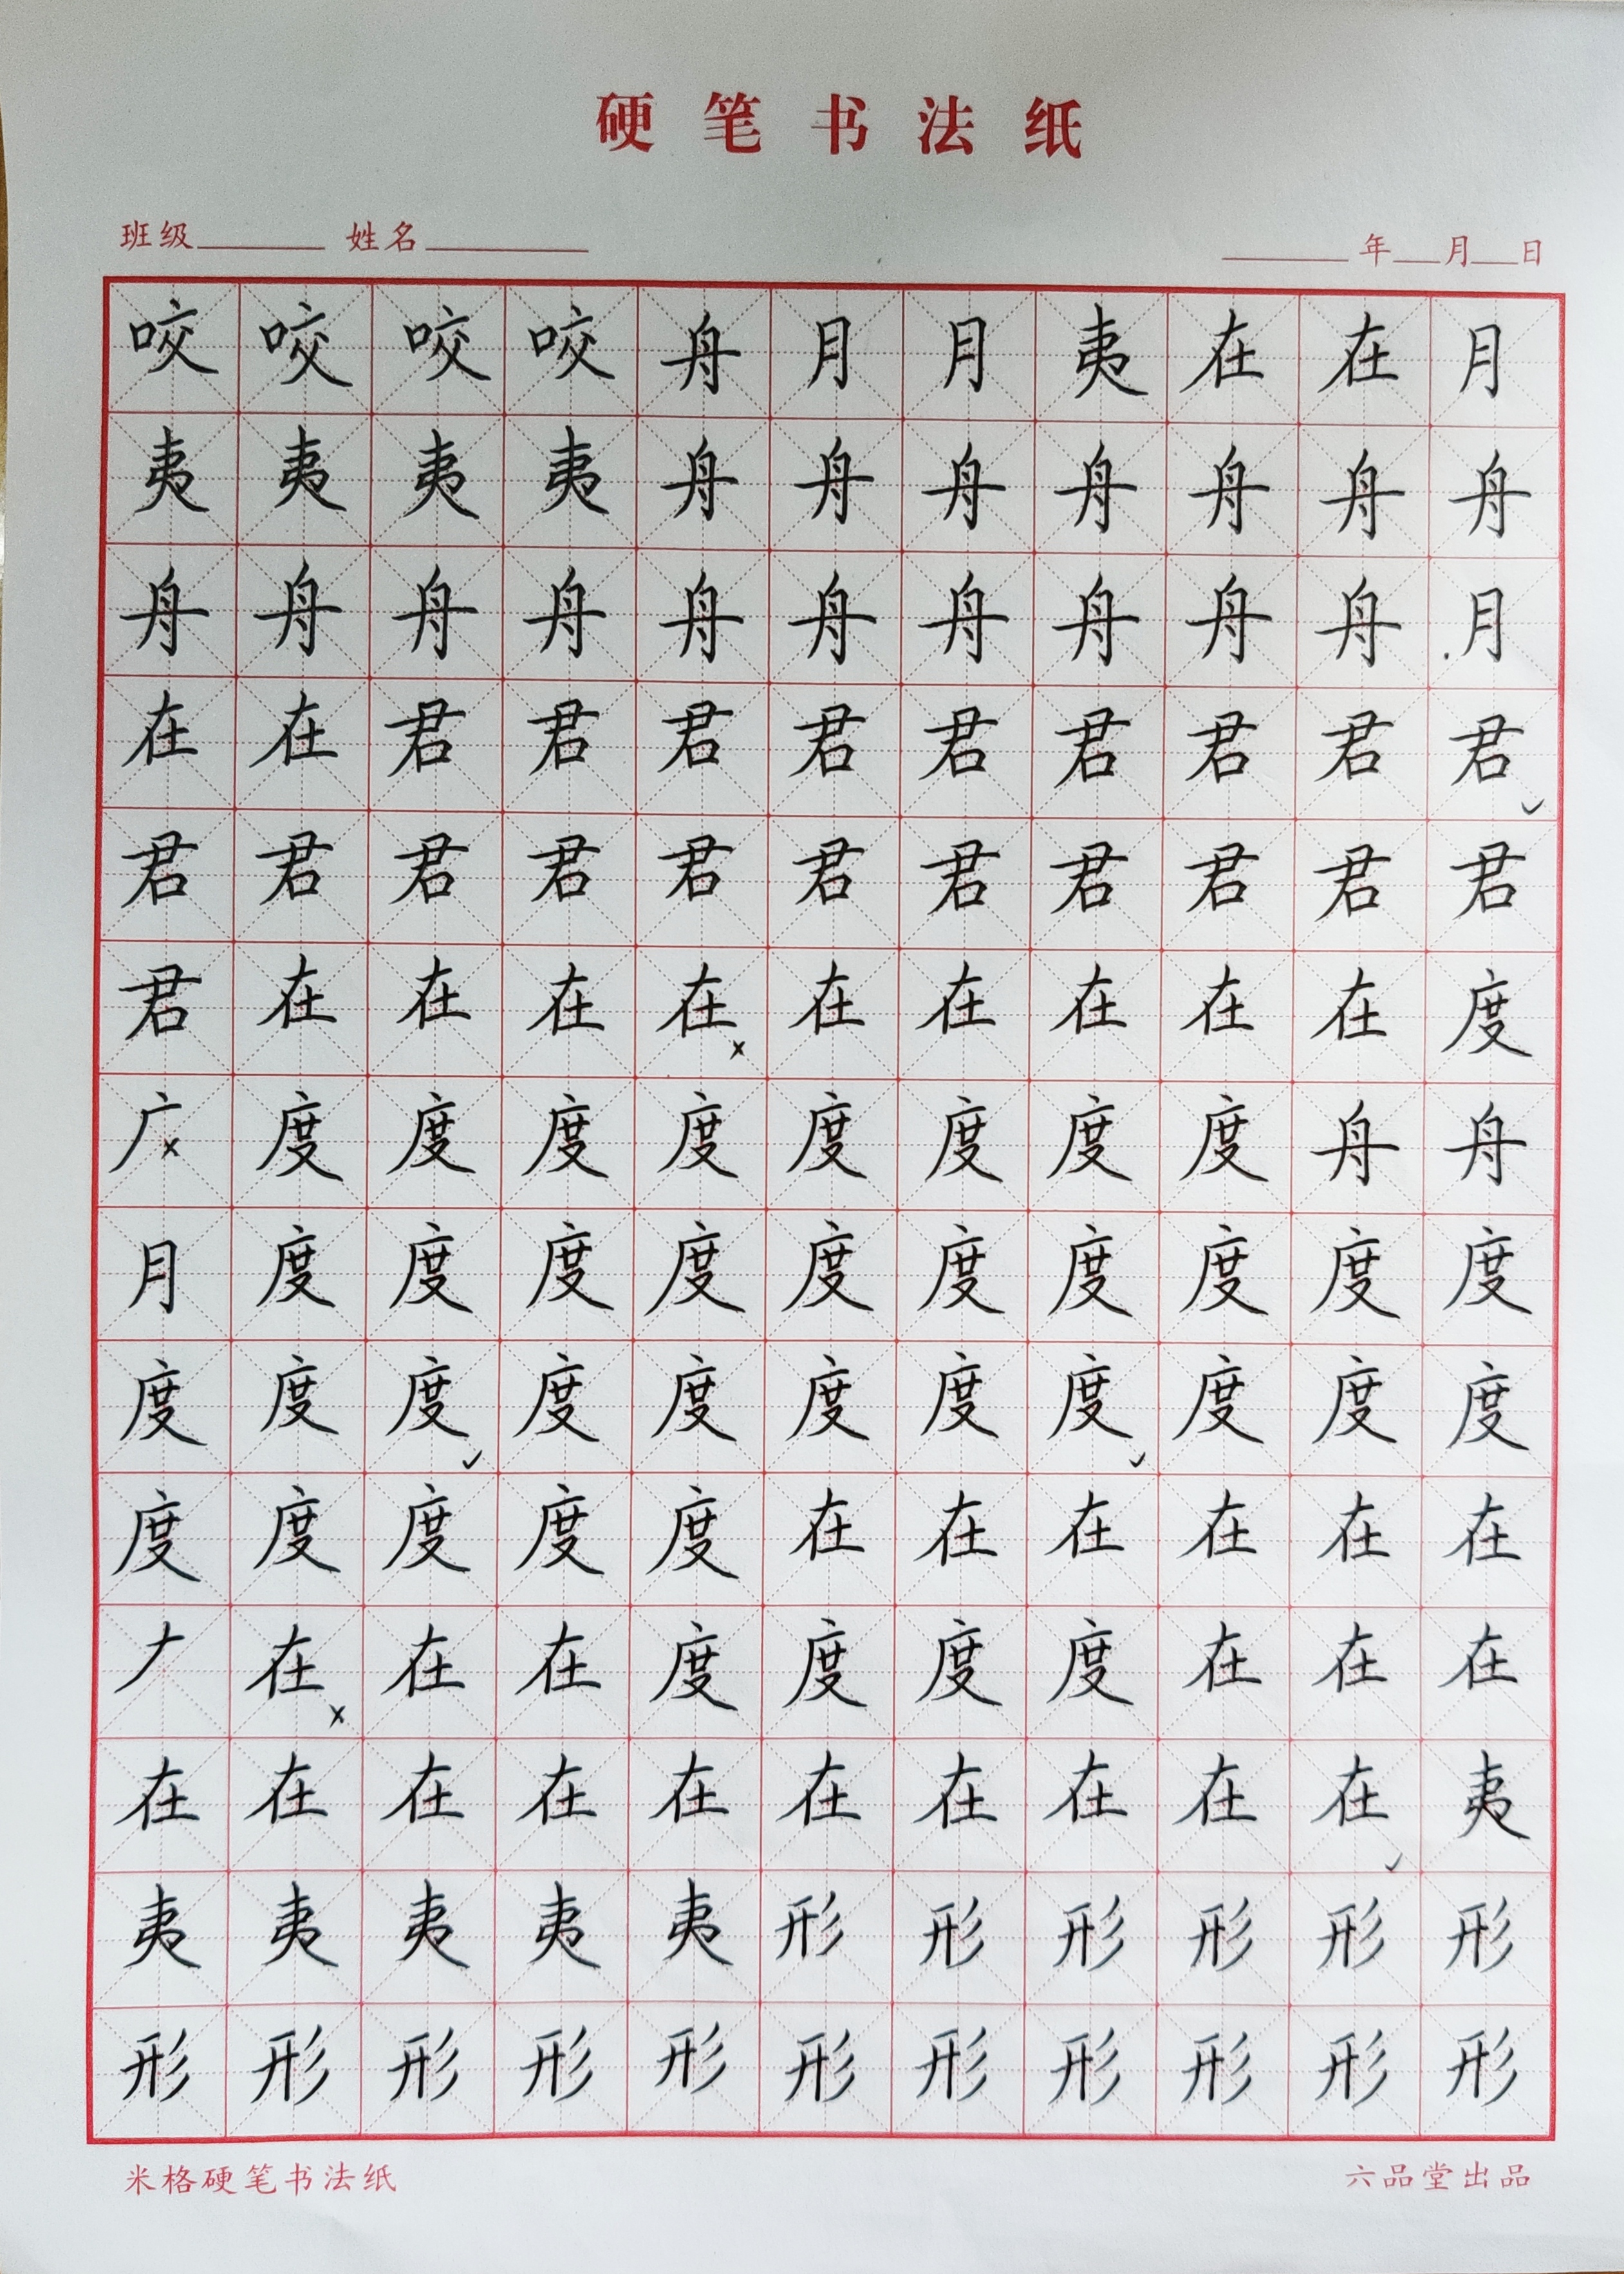 硬笔书法纸
班级 姓名 年 月 日
咬咬咬咬舟月月夷在在月
夷夷夷夷舟舟舟舟舟舟舟
舟舟舟舟舟舟舟舟舟舟月
在在君君君君君君君君君
君君君君君君君君君君君
君在在在在在在在在在度
广度度度度度度度度舟舟
月度度度度度度度度度度
度度度度度度度度度度度
度度度度度在在在在在在
𠂇在在在度度度度在在在
在在在在在在在在在在夷
夷夷夷夷夷形形形形形形
形形形形形形形形形形形
米格硬笔书法纸 六品堂出品